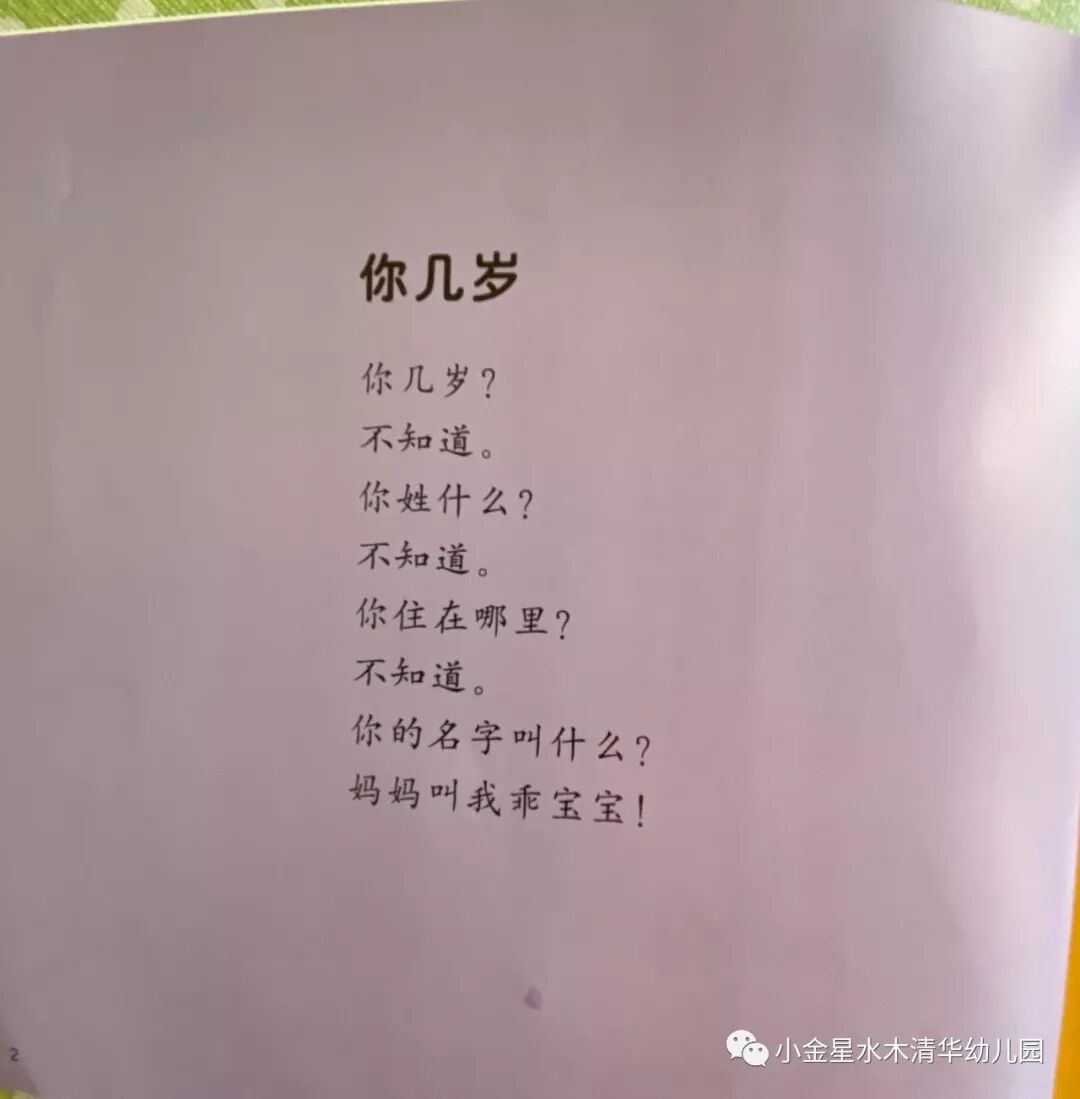 你几岁
你几岁？
不知道。
你姓什么？
不知道。
你住在哪里？
不知道。
你的名字叫什么？
妈妈叫我乖宝宝！
2
小金星水木清华幼儿园